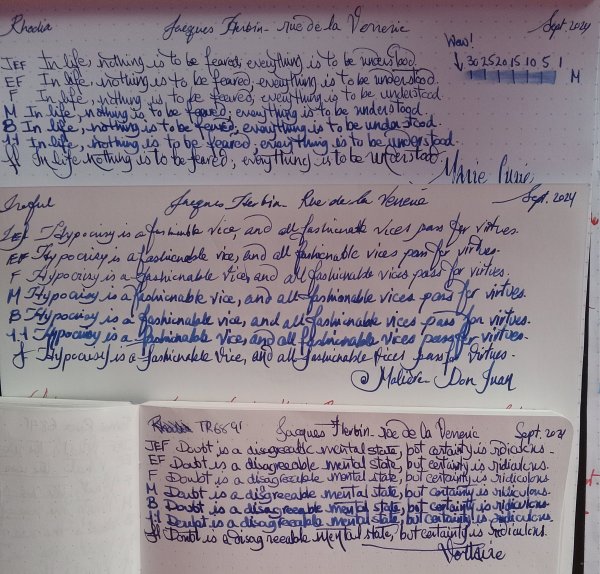 Rhodia Jacques Herbin - rue de la Verrerie Sept. 2024
Wow!
↓ 30 25 20 15 10 5 1
M
JEF In life, nothing is to be feared, everything is to be understood.
EF In life, nothing is to be feared, everything is to be understood.
F In life, nothing is to be feared, everything is to be understood.
M In life, nothing is to be feared, everything is to be understood.
B In life, nothing is to be feared, everything is to be understood.
1.1 In life, nothing is to be feared, everything is to be understood.
In life nothing is to be feared, everything is to be understood.
Marie Curie
Jacques Herbin - Rue de la Verrerie Sept. 2024
JEF Hypocrisy is a fashionable vice, and all fashionable vices pass for virtues.
EF Hypocrisy is a fashionable vice, and all fashionable vices pass for virtues.
F Hypocrisy is a fashionable vice, and all fashionable vices pass for virtues.
M Hypocrisy is a fashionable vice, and all fashionable vices pass for virtues.
B Hypocrisy is a fashionable vice, and all fashionable vices pass for virtues.
1.1 Hypocrisy is a fashionable vice, and all fashionable vices pass for virtues.
Hypocrisy is a fashionable vice, and all fashionable vices pass for virtues.
Molière - Don Juan
Rhodia TR6891 Jacques Herbin - rue de la Verrerie Sept. 2024
JEF Doubt is a disagreeable mental state, but certainty is ridiculous.
EF Doubt is a disagreeable mental state, but certainty is ridiculous.
F Doubt is a disagreeable mental state, but certainty is ridiculous
M Doubt is a disagreeable mental state, but certainty is ridiculous.
B Doubt is a disagreeable mental state, but certainty is ridiculous.
1.1 Doubt is a disagreeable mental state, but certainty is ridiculous.
Doubt is a disagreeable mental state, but certainty is ridiculous.
Voltaire